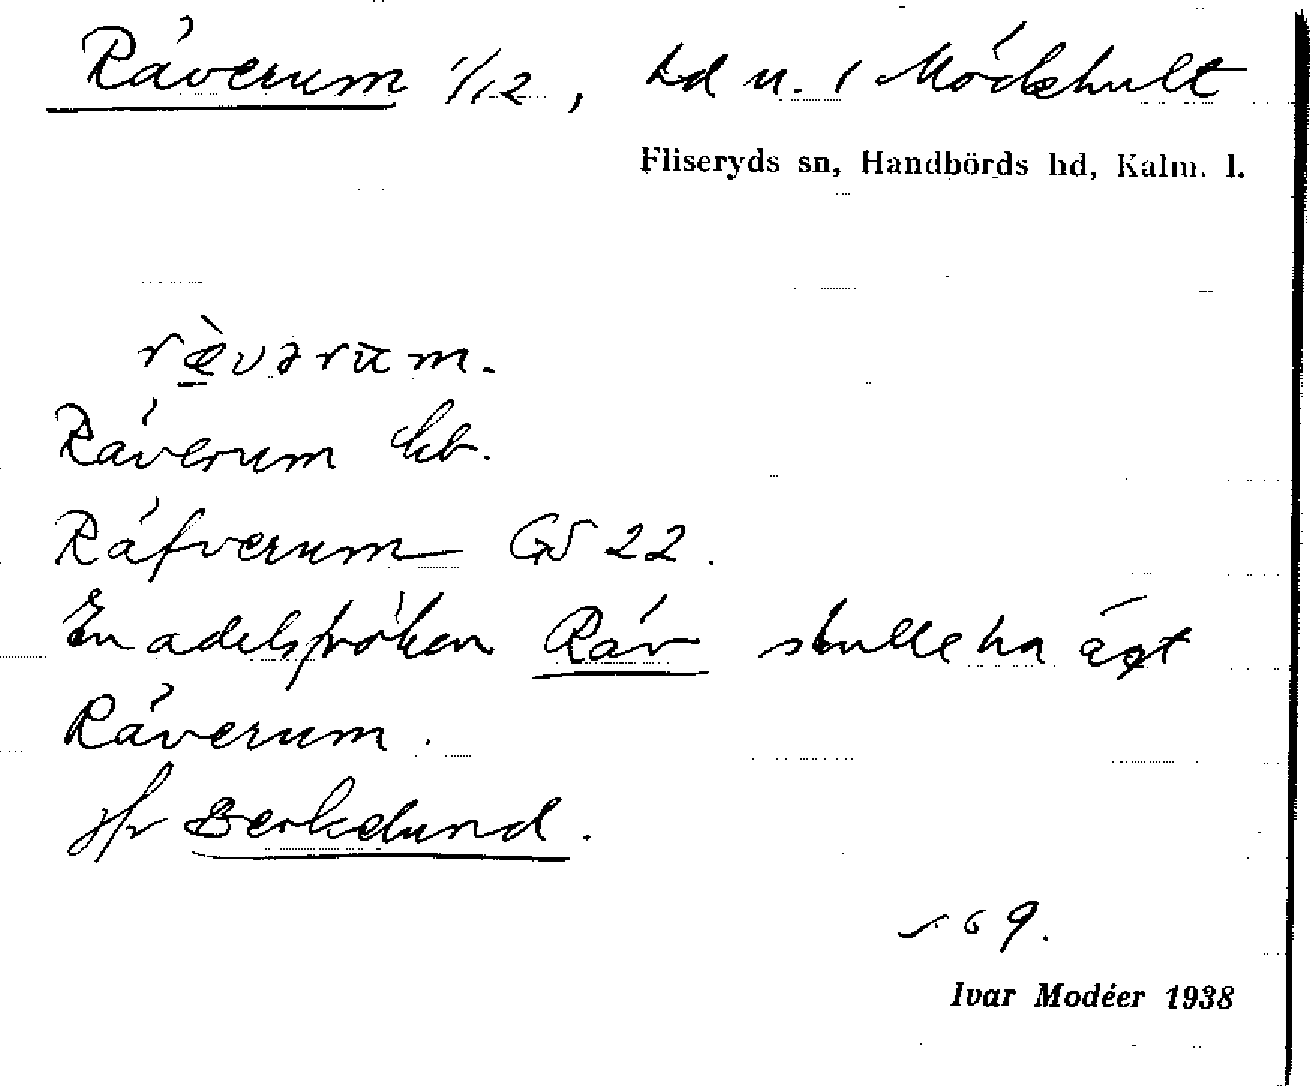 Räverum 1/12, hd u. / Mödehult
Fliseryds sn, Handbörds hd, Kalm. l.
ræ̀vərum.
Räverum kb.
Räfverum GS 22.
En adelsfröken Räv skulle ha ägt
Räverum.
jfr Berkelund.
169.
Ivar Modéer 1938